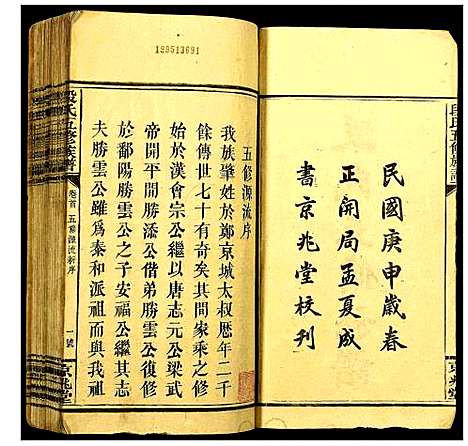 民國庚申歲春
正開局孟夏成
書京兆堂校刊
段氏五修族譜
京兆堂
198513691
五修源流序
我族肇姓於鄭京城太叔歷年二千
餘傳世七十有奇矣其間家乘之修
始於漢會宗公繼以唐志元公梁武
帝開平時勝添公偕弟勝雲公復修
於鄱陽勝雲公之子安福公繼其志
夫勝雲公雖爲秦和派祖而與我祖
段氏五修族譜
卷首 五修源流新序
一號
京兆堂